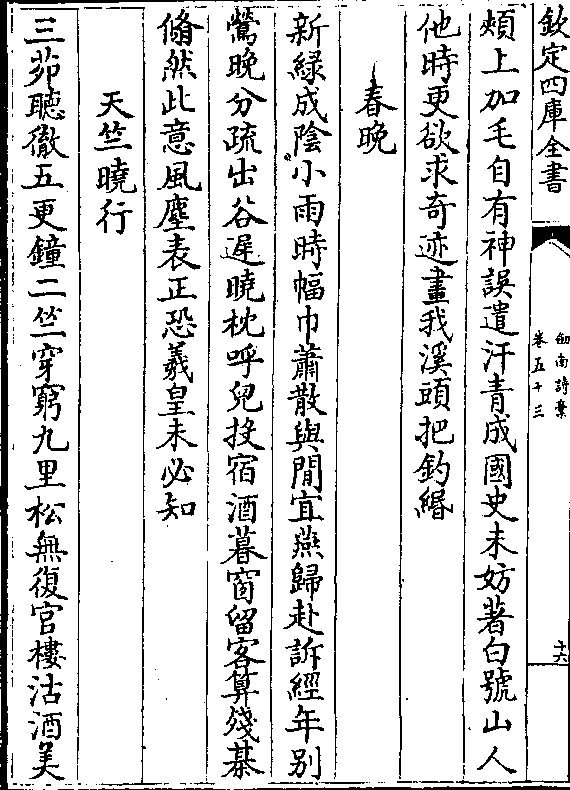 欽定四庫全書
劍南詩稾
卷五十三
十六
頰上加毛自有神誤遣汗青成國史未妨著白號山人
他時更欲求奇迹畫我溪頭把釣緡
春晩
新緑成陰小雨時幅巾蕭散與閒宜燕歸赴訴經年别
鶯晚分疏出谷遲曉枕呼兒投宿酒暮窗留客算殘棊
翛然此意風塵表正恐羲皇未必知
天竺曉行
三茆聽徹五更鐘二竺穿窮九里松無復官樓沽酒美